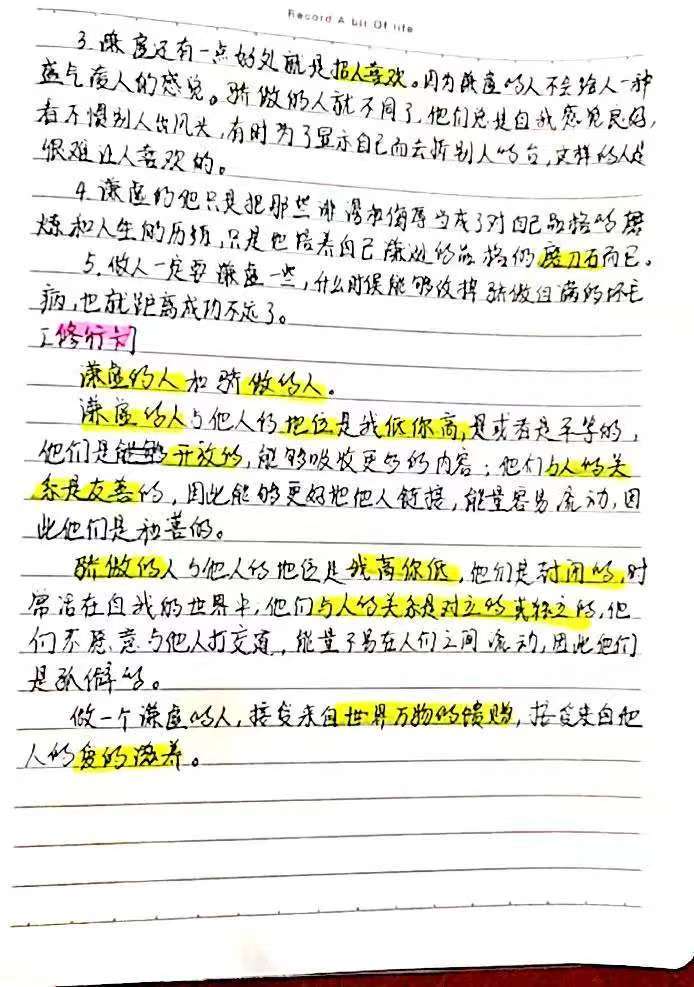 Record A bit Of life
3.谦虚还有一点好处就是招人喜欢。因为谦虚的人不会给人一种
盛气凌人的感觉。骄傲的人就不同了,他们总是自我感觉良好,
看不惯别人出风头,有时为了显示自己而去拆别人的台,这样的人是
很难让人喜欢的。
4.谦虚的他只是把那些诽谤和侮辱当成了对自己品格的磨
炼和人生的历练,只是他培养自己谦逊的品格的磨刀石而已。
5.做人一定要谦虚一些,什么时候能够改掉骄傲自满的坏毛
病,也就距离成功不远了。
修行
谦虚的人和骄傲的人。
谦虚的人与他人的地位是我低你高,是或者是平等的,
他们是能够开放的,能够吸收更多的内容;他们与人的关
系是友善的,因此能够更好地他人链接,能量容易流动,因
此他们是和善的。
骄傲的人与他人的地位是我高你低,他们是封闭的,时
常活在自我的世界中,他们与人的关系是对立的 的,他
们不愿意与他人打交道,能量不易在人们之间流动,因此他们
是孤僻的。
做一个谦虚的人,接受来自世界万物的馈赠,接受来自他
人的爱的滋养。